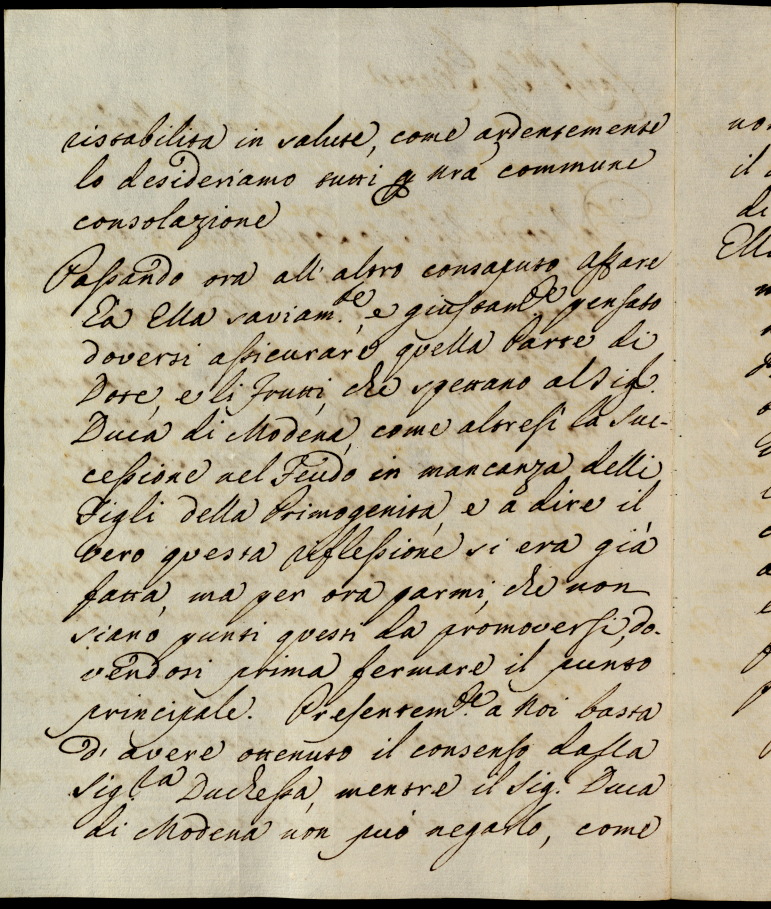 ristabilita in salute, come ardentemente
lo desideriamo tutti p nrã commune
consolazione
Passando ora all' altro consaputo affare
Ea Ella saviam.te, e giustam.te pensato
doversi assicurare quella Parte di
Dote, e li frutti, che spettano al Sig.
Duca di Modena, come altresi la Suc-
cessione nel Feudo in mancanza delli
Figli della Primogenita, e a dire il
vero questa riflessione si era già
fatta, ma per ora parmi, che non
siano punti questi da promoversi, do-
vendosi prima fermare il punto
principale. Presentem.te a Noi basta
d' avere ottenuto il consenso dalla
Sig.ra Duchessa, mentre il Sig. Duca
di Modena non può negarlo, come
non
il
di
Ella